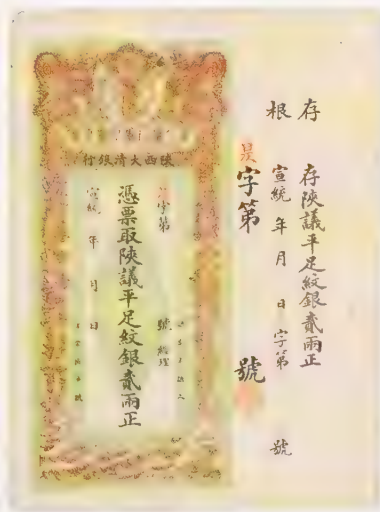 存根
存陝議平足紋銀貳兩正
宣統 年 月 日 字第 號
字第 號
陝西大清銀行
字第 號 經理
憑票取陝議平足紋銀貳兩正
宣統 年 月 日